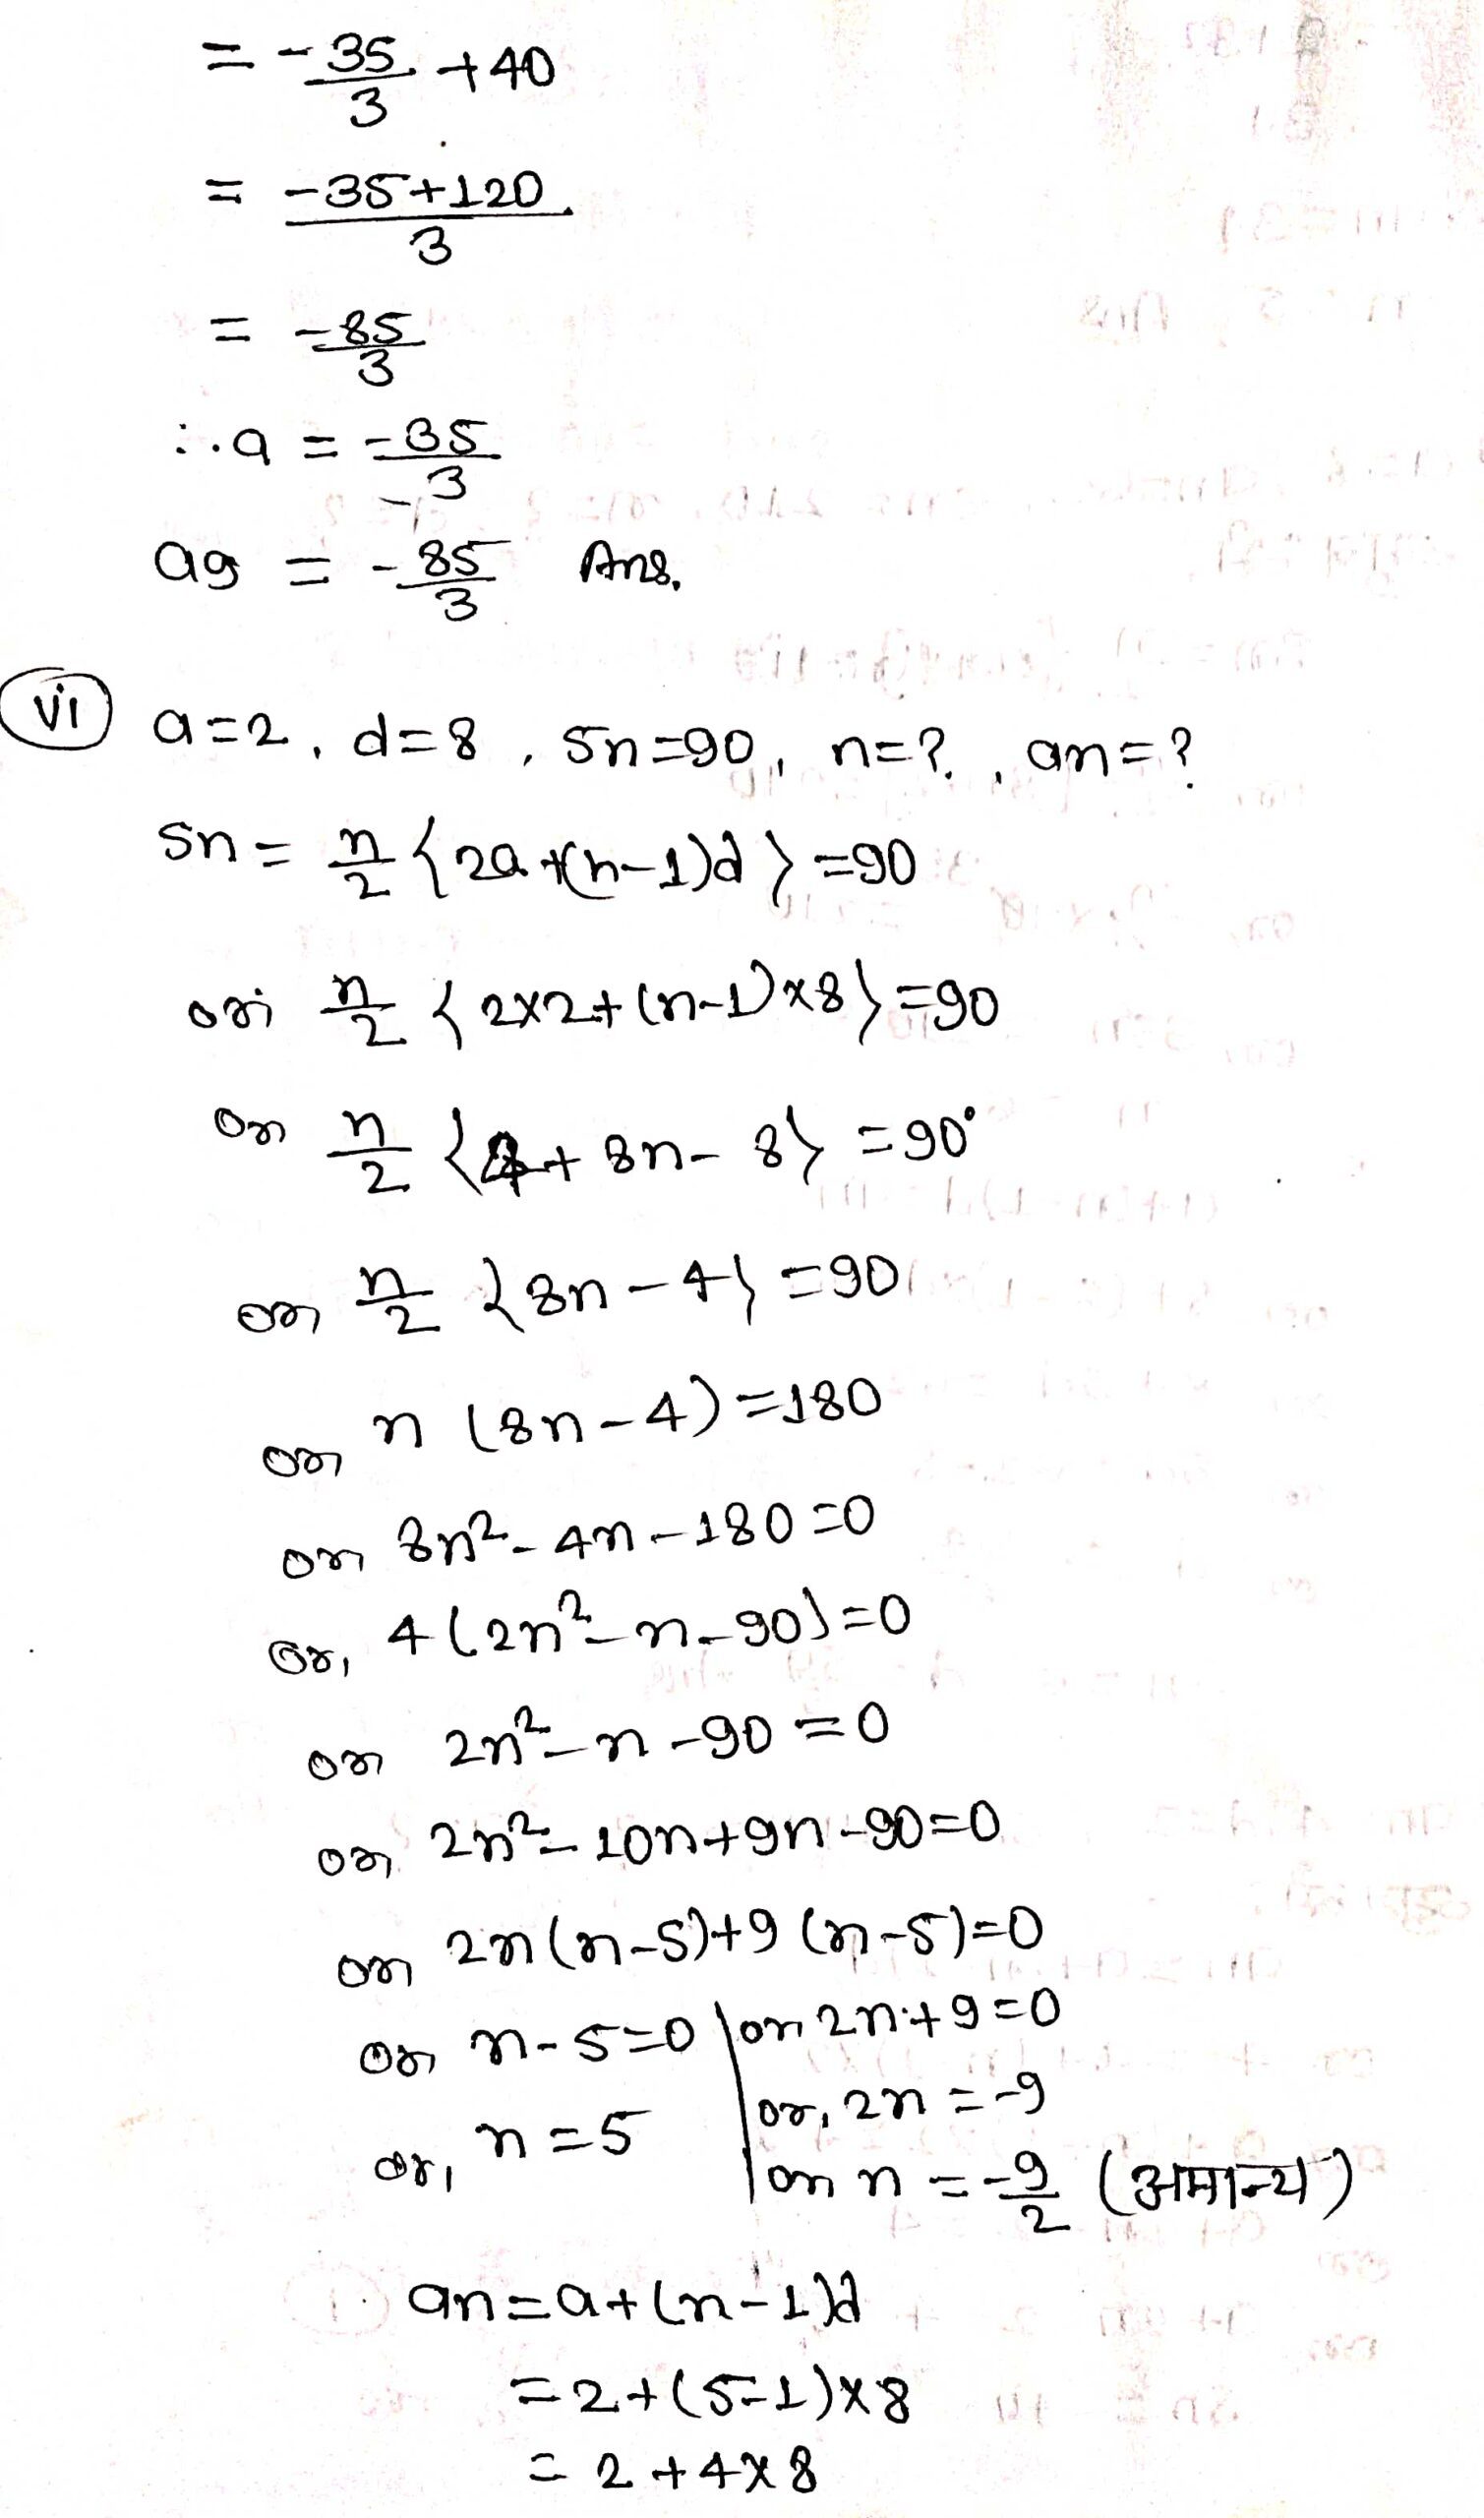 = -35/3 + 40
= (-35+120)/3
= -85/3
∴ a = -35/3
a9 = -85/3 Ans.
(vi) a=2, d=8, Sn=90, n=?, an=?
Sn = n/2 {2a+(n-1)d} =90
or n/2 {2×2+(n-1)×8} =90
or n/2 {4+8n-8} =90
or n/2 {8n-4} =90
or n(8n-4)=180
or 8n²-4n-180=0
or, 4(2n²-n-90)=0
or 2n²-n-90=0
or 2n²-10n+9n-90=0
or 2n(n-5)+9(n-5)=0
or n-5=0 | or 2n+9=0
or, n=5 | or, 2n=-9
| or n=-9/2 (अमान्य)
an=a+(n-1)d
=2+(5-1)×8
=2+4×8